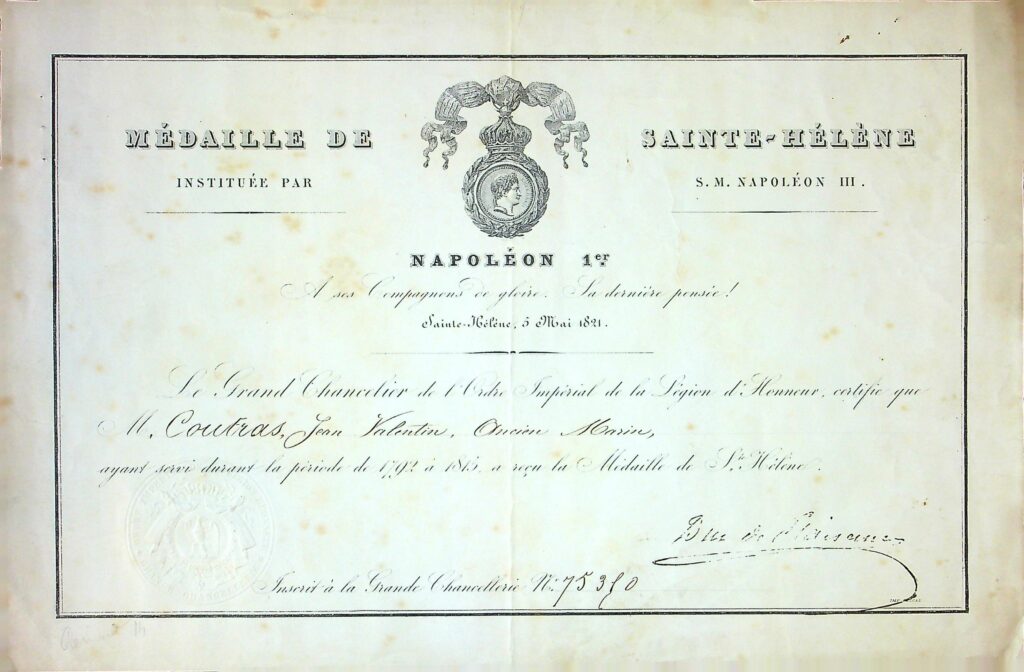 MÉDAILLE DE SAINTE-HÉLÈNE
INSTITUÉE PAR S. M. NAPOLÉON III.
NAPOLÉON 1er
A ses Compagnons de gloire. Sa dernière pensée!
Sainte-Hélène, 5 Mai 1821.
Le Grand Chancelier de l'Ordre Impérial de la Légion d'Honneur, certifie que
M. Coutras, Jean Valentin, Ancien Marin,
ayant servi durant la période de 1792 à 1815, a reçu la Médaille de Ste Hélène.
Duc de Plaisance
Inscrit à la Grande Chancellerie No: 75310